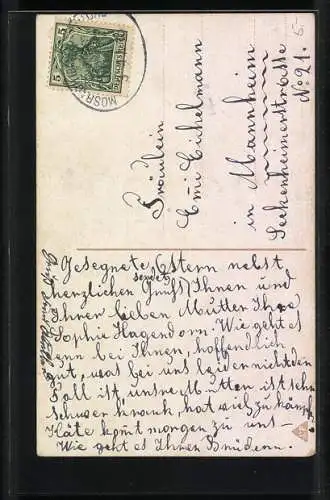 5
5
MOSB
5
Fräulein
Emi Eichelmann
in Mannheim
Seckenheimerstrasse
No 21.
Gesegnete Ostern nebst
herzlichen Gruß sendet Ihnen und
Ihrer lieben Mutter Ihre
Sophie Hagendorn. Wie geht es
denn bei Ihnen, hoffendlich
gut, was bei uns leider nicht der
Fall ist, unsre Mutter ist sehr
schwer krank, hat viel zu kämpfen
Käte komt morgen zu uns –
Wie geht es Ihren Brüdern.